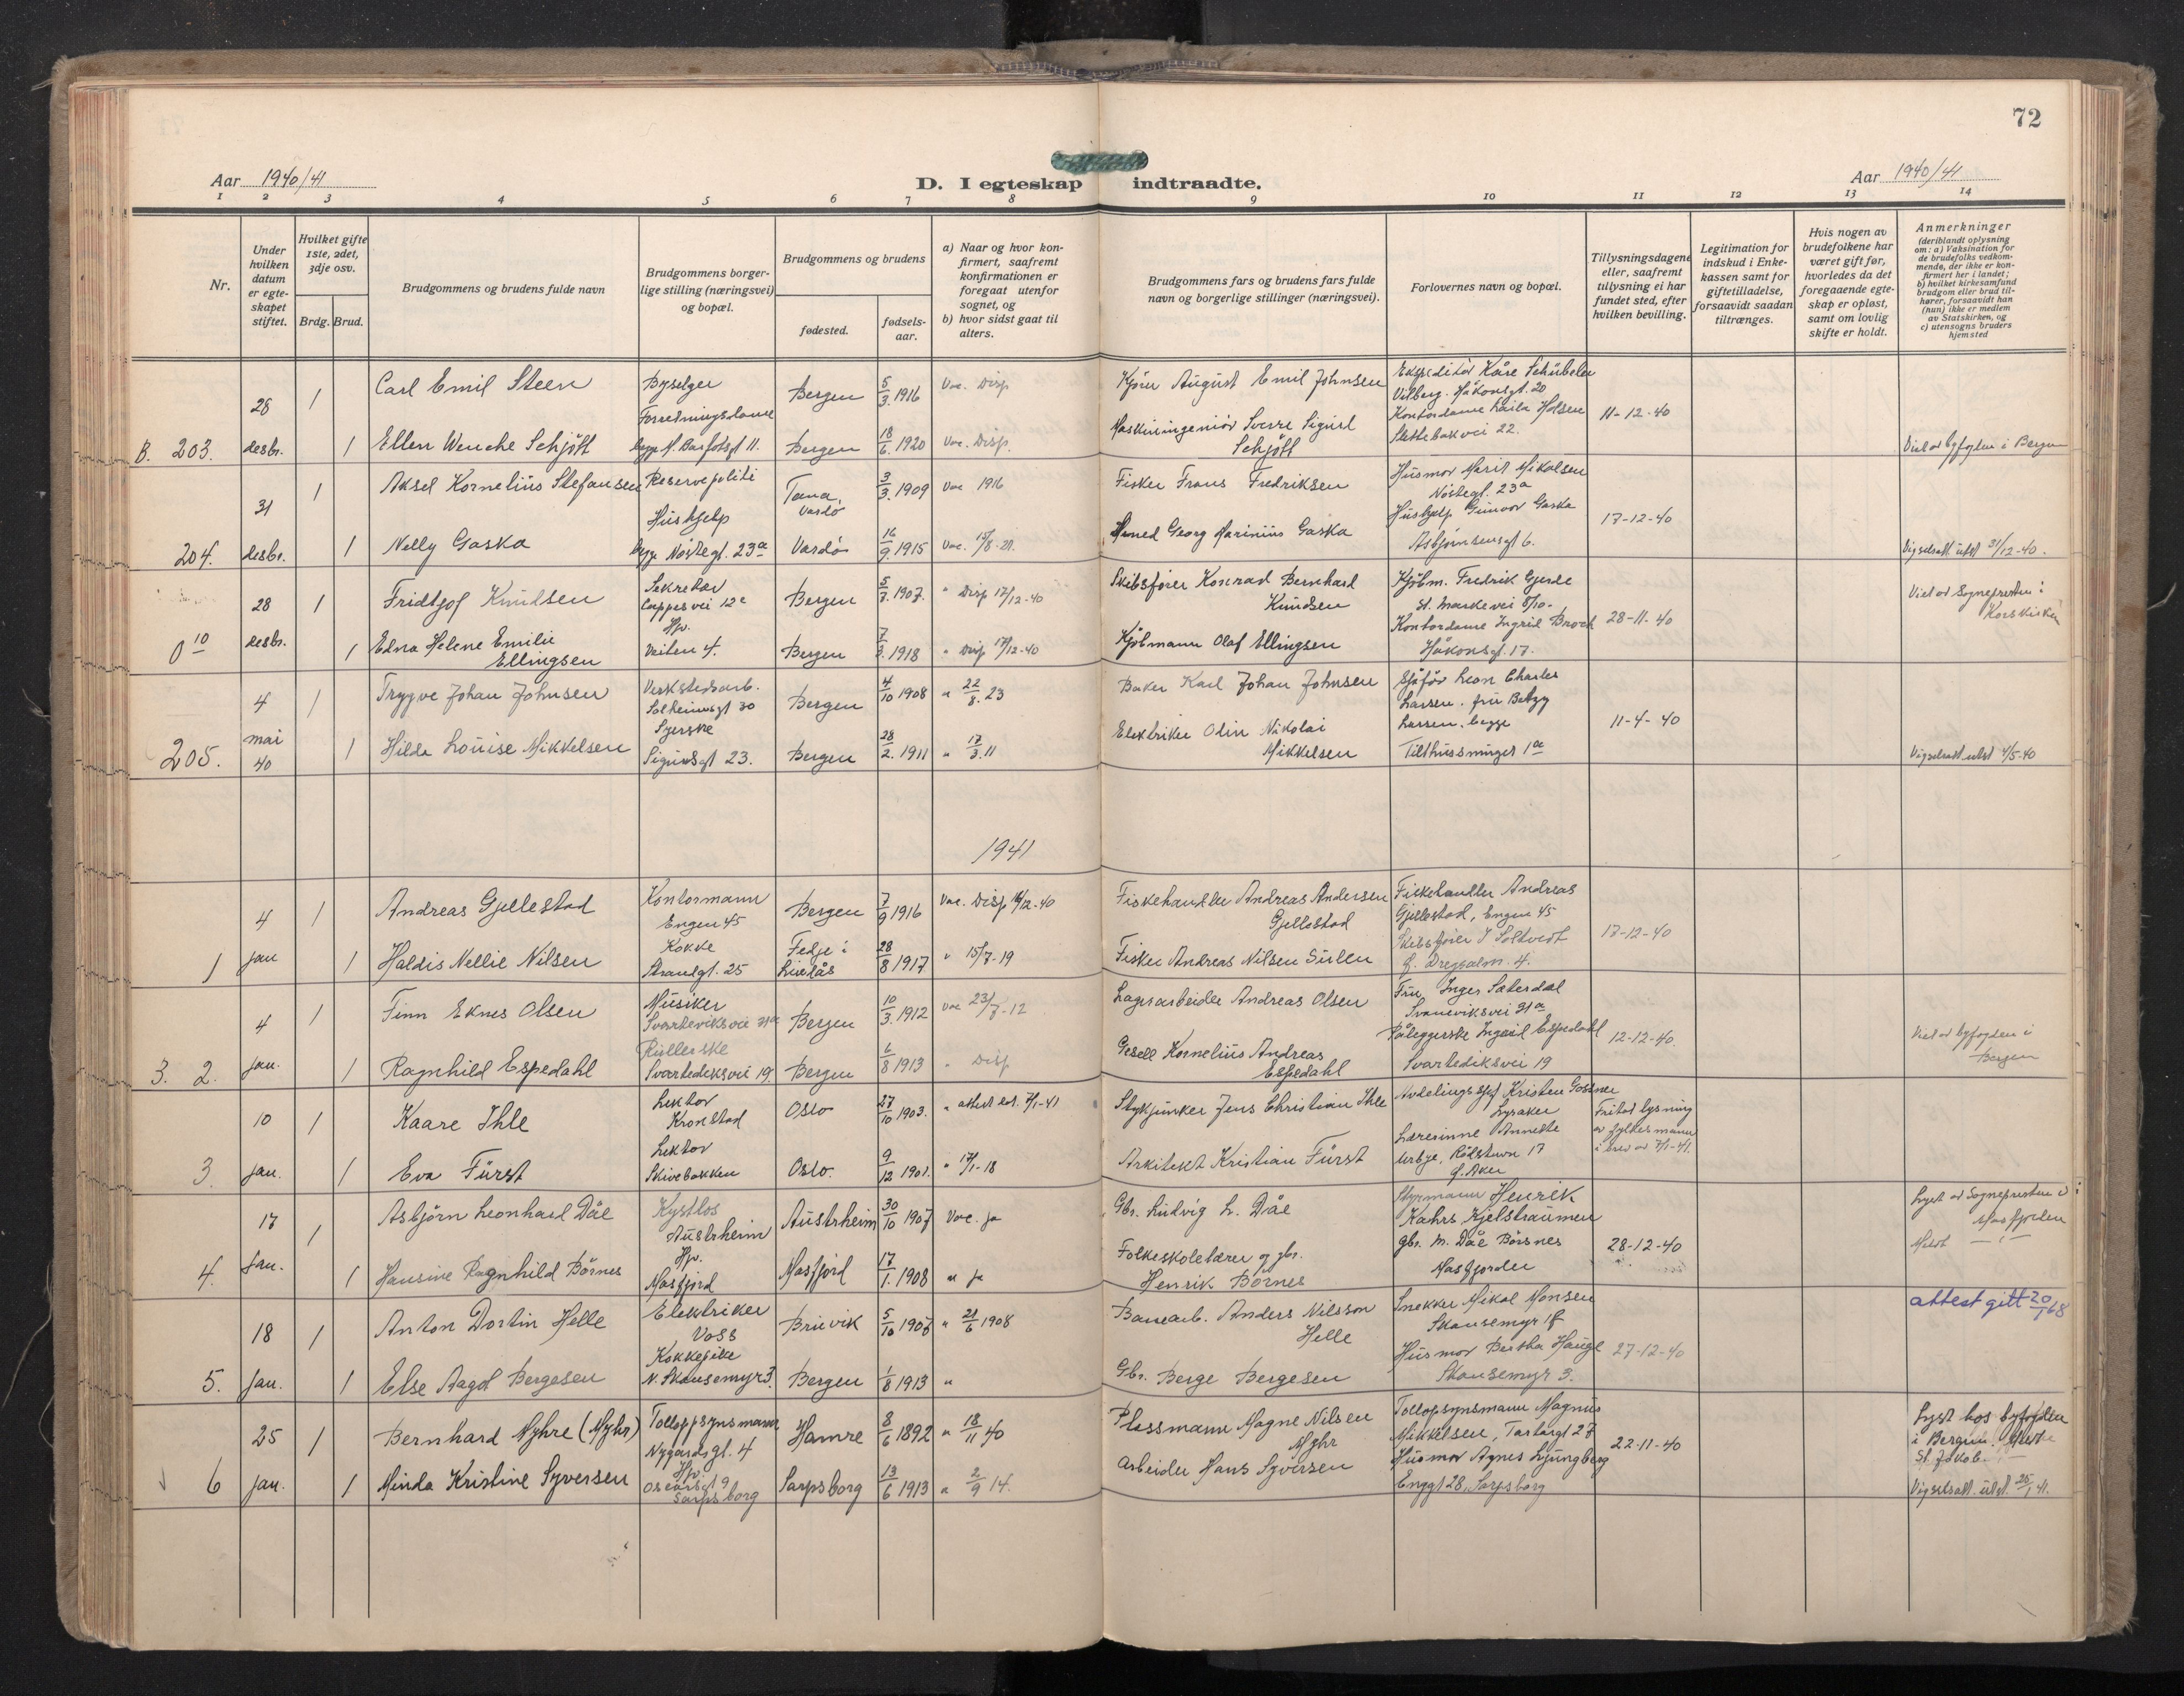 72
Aar 1940/41
D. I egteskap indtraadte.
Aar 1940/41
1 2 3 4 5 6 7 8 9 10 11 12 13 14
Nr.
Under hvilken datum er egteskapet stiftet.
Hvilket gifte 1ste, 2det, 3dje osv.
Brdg. Brud.
Brudgommens og brudens fulde navn
Brudgommens borgerlige stilling (næringsvei) og bopæl.
Brudgommens og brudens
fødested.
fødselsaar.
a) Naar og hvor konfirmert, saafremt konfirmationen er foregaat utenfor sognet, og
b) hvor sidst gaat til alters.
Brudgommens fars og brudens fars fulde navn og borgerlige stillinger (næringsvei).
Forlovernes navn og bopæl.
Tillysningsdagene eller, saafremt tillysning ei har fundet sted, efter hvilken bevilling.
Legitimation for indskud i Enkekassen samt for giftetilladelse, forsaavidt saadan tiltrænges.
Hvis nogen av brudefolkene har været gift før, hvorledes da det foregaaende egteskap er opløst, samt om lovlig skifte er holdt.
Anmerkninger
(deriblandt oplysning om: a) Vaksination for de brudefolks vedkommende, der ikke er konfirmert her i landet;
b) hvilket kirkesamfund brudgom eller brud tilhører, forsaavidt han (hun) ikke er medlem av Statskirken, og
c) utensogns bruders hjemsted
B. 203. 28 desbr. 1 Carl Emil Steen Byselger Bergen 5/3.1916 Vac. Disp Kjören August Emil Johnsen Ekspeditör Kåre Schübeler
Vilberg. Håkonsgt. 20
1 Ellen Wenche Schjött Forretningsdame begge M. Barfotsgt 11. Bergen 18/6.1920 Vac. Disp. Maskiningeniör Sverre Sigurd Schjött Kontordame Laila Holsen
Slettebakvei 22. 11-12-40 Viet av byfogden i Bergen
204. 31 desbr. 1 Aksel Kornelius Stefansen Reservepoliti Tana, Vardö 3/3.1909 Vac 1916 Fisker Frans Fredriksen Husmor Marit Mikalsen
Nöstegt. 23a
1 Nelly Gaska Hushjelp begge Nöstegt. 23a Vardö 16/9.1915 Vac. 15/8-21. Georg Marinius Gaska Hushjelp Gunvor Gaska
Asbjörnsensgt 6. 17-12-40 Vigselsatt. utst 31/12-40.
0 10 28 desbr. 1 Fridtjof Knudsen Sekretær Lappesvei 12c Bergen 5/7.1907. " Disp 17/12-40 Skibsförer Konrad Bernhard Knudsen Kjöbm. Fredrik Gjerde
St. Markevei 8/10.
1 Edna Helene Emilie Ellingsen Hjv. Veiten 4. Bergen 7/3.1918 " Disp 17/12-40 Kjöbmann Olaf Ellingsen Kontordame Ingrid Broch
Håkonsgt. 17. 28-11-40 Viet av Sognepresten i Korskirken
205. 4 mai 40 1 Trygve Johan Johnsen Verkstedsarb. Solheimsgt 30 Bergen 4/10 1908 " 22/8. 23 Baker Karl Johan Johnsen Sjåför Leon Charles
Larsen. fru Betzy
1 Hilda Louise Mikkelsen Syerske Sigurdsgt 23. Bergen 28/2.1911 " 17/3.11 Elektriker Olin Nikolai Mikkelsen Larsen. begge
Tilthussmuget 1a 11-4-40 Vigselsatt. utst 4/5-40
1941
1 4 jan 1 Andreas Gjellestad Kontormann Engen 45 Bergen 7/9 1916 Vac. Disp 16/12-40 Fiskehandler Andreas Andersen Gjellestad Fiskehandler Andreas
Gjellestad, Engen 45
1 Haldis Nellie Nilsen Kokke Strandgt. 25 Fedje i Lindås 28/8 1917 " 15/7-19 Fisker Andreas Nilsen Sulen Skibsförer J Soltvedt
Dreggalm. 4. 17-12-40
3. 2. 4 jan. 1 Finn Eknes Olsen Musiker Svarteviksvei 31a Bergen 10/3.1912 Vac 23/7-12 Lagerarbeider Andreas Olsen Fru Inger Säterdal
Svaneviksvei 31a
1 Ragnhild Espedahl Rullerske Svartediksvei 19. Bergen 6/8 1913 " Disp Gesell Kornelius Andreas Espedahl Påleggerske Ingrid Espedahl
Svartediksvei 19 12-12-40. Viet av byfogden i Bergen
3. 10 jan. 1 Kaare Ihle Lektor Kronstad Oslo 27/10 1903. " attest 7/1-41 Stykjunker Jens Christian Ihle Avdelingssjef Kristen Gossner
Lysaker
1 Eva Fürst Lektor Skivebakken Oslo. 9/12 1901. " 17/1-18 Arkitekt Kristian Fürst Lærerinne Annette
Urbye, Rölstuvn 17
Aker Fritat lysning av fylkesmann i brev av 7/1-41.
4. 17 Jan. 1 Asbjörn Leonhard Dåe Kystlos Austrheim Austrheim 30/10 1907 Vac. ja Gbr. Ludvig L. Dåe Styrmann Henrik
Kahrs, Kjelstraumen
1 Hansine Ragnhild Börnes Hjv. Masfjord Masfjord 17/1.1908 " ja Folkeskolelærer og gbr. Henrik Börnes gbr. M. Dåe Börsnes
Masfjorden 28-12-40 Lyst av Sognepresten i Masfjorden
5. 18 jan. 1 Anton Dortin Helle Elektriker Voss Bruvik 5/10 1907 " 21/6 1908 Banearb. Anders Nilsson Helle Snekker Mikal Monsen
Skansemyr 1f
1 Else Aagot Bergesen Kokkepike N. Skansemyr 3. Bergen 1/8 1913 " Gbr. Berge Bergesen Husmor Bertha Hauge
Skansemyr 3. 27-12-40 attest gitt 20/1 68
6 25 jan. 1 Bernhard Myhre (Myhr) Tolloppsynsmann Nygardsgt. 4 Hamre 8/6 1892 " 18/11 40 Plassmann Magne Nilsen Myhr Tollopsynsmann Magnus
Mikkelsen, Tartargt 27
1 Minda Kristine Syversen Hjv. Oscarsgt 9 Sarpsborg Sarpsborg 13/6 1913 " 2/9 14. Arbeider Hans Syversen Husmor Agnes Ljungberg
Enggt 28, Sarpsborg 22-11-40 Lyst hos byfogden i Bergen.
St. Jakob.
Vigselsatt. utst. 25/1 41.